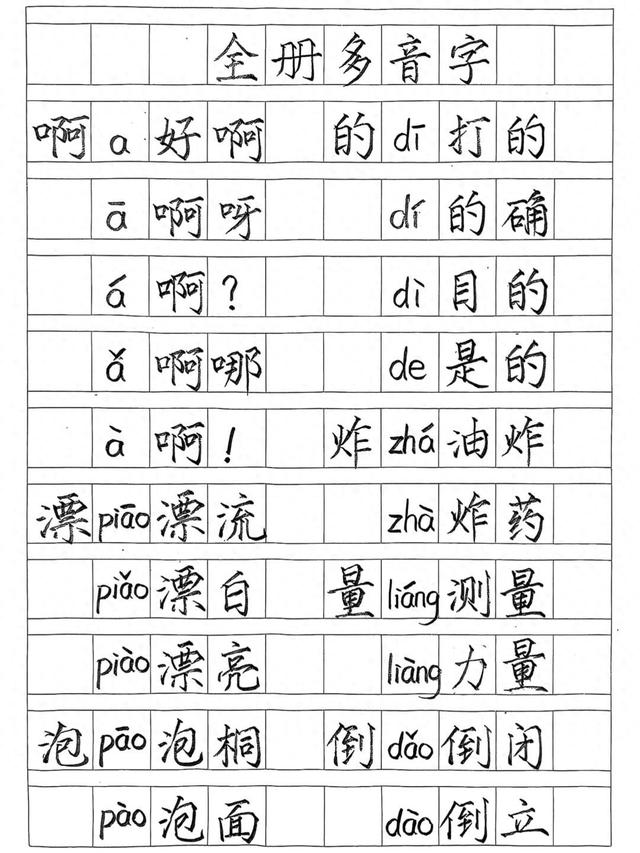 全册多音字
啊 a 好啊 的 dī 打的
ā 啊呀 dí 的确
á 啊? dì 目的
ǎ 啊哪 de 是的
à 啊! 炸 zhá 油炸
漂 piāo 漂流 zhà 炸药
piǎo 漂白 量 liáng 测量
piào 漂亮 liàng 力量
泡 pāo 泡桐 倒 dǎo 倒闭
pào 泡面 dào 倒立